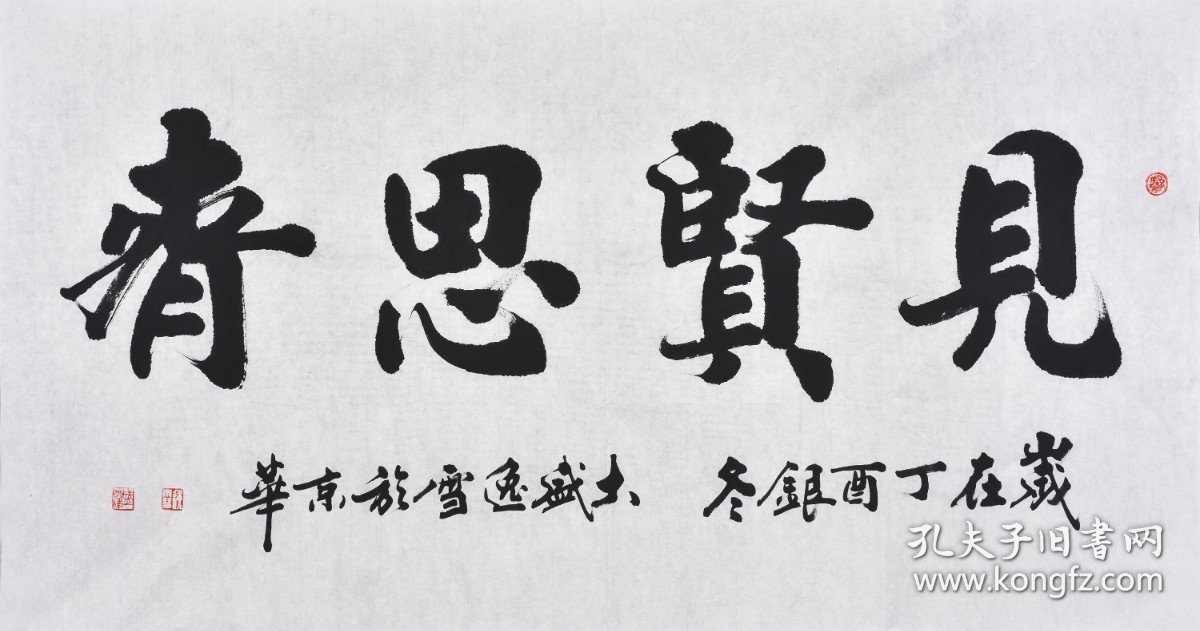 見賢思齊
歲在丁酉銀冬 大盛逸雪於京華
孔夫子旧書网
www.kongfz.com